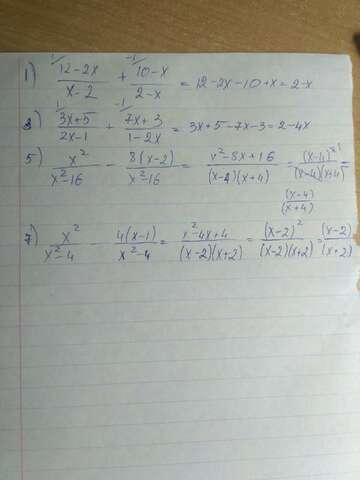 1) 12-2x/x-2 + 10-x/2-x = 12-2x-10+x = 2-x
3) 3x+5/2x-1 + 7x+3/1-2x = 3x+5-7x-3 = 2-4x
5) x²/x²-16 - 8(x-2)/x²-16 = x²-8x+16/(x-4)(x+4) = (x-4)²/(x-4)(x+4) =
(x-4)/(x+4)
7) x²/x²-4 4(x-1)/x²-4 = x²-4x+4/(x-2)(x+2) = (x-2)²/(x-2)(x+2) = (x-2)/(x+2)